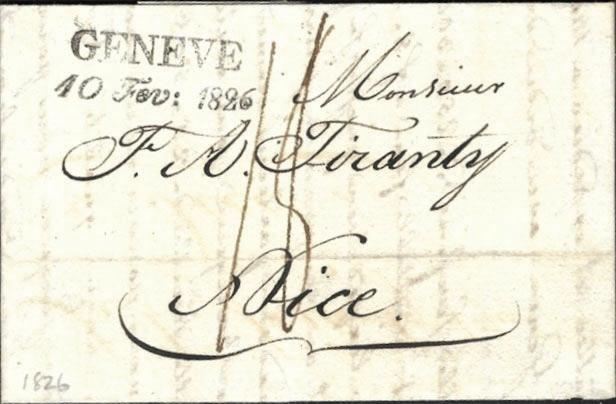 GENEVE
10 Fev: 1826
Monsieur
F. A. Tiranty
Nice.
1826